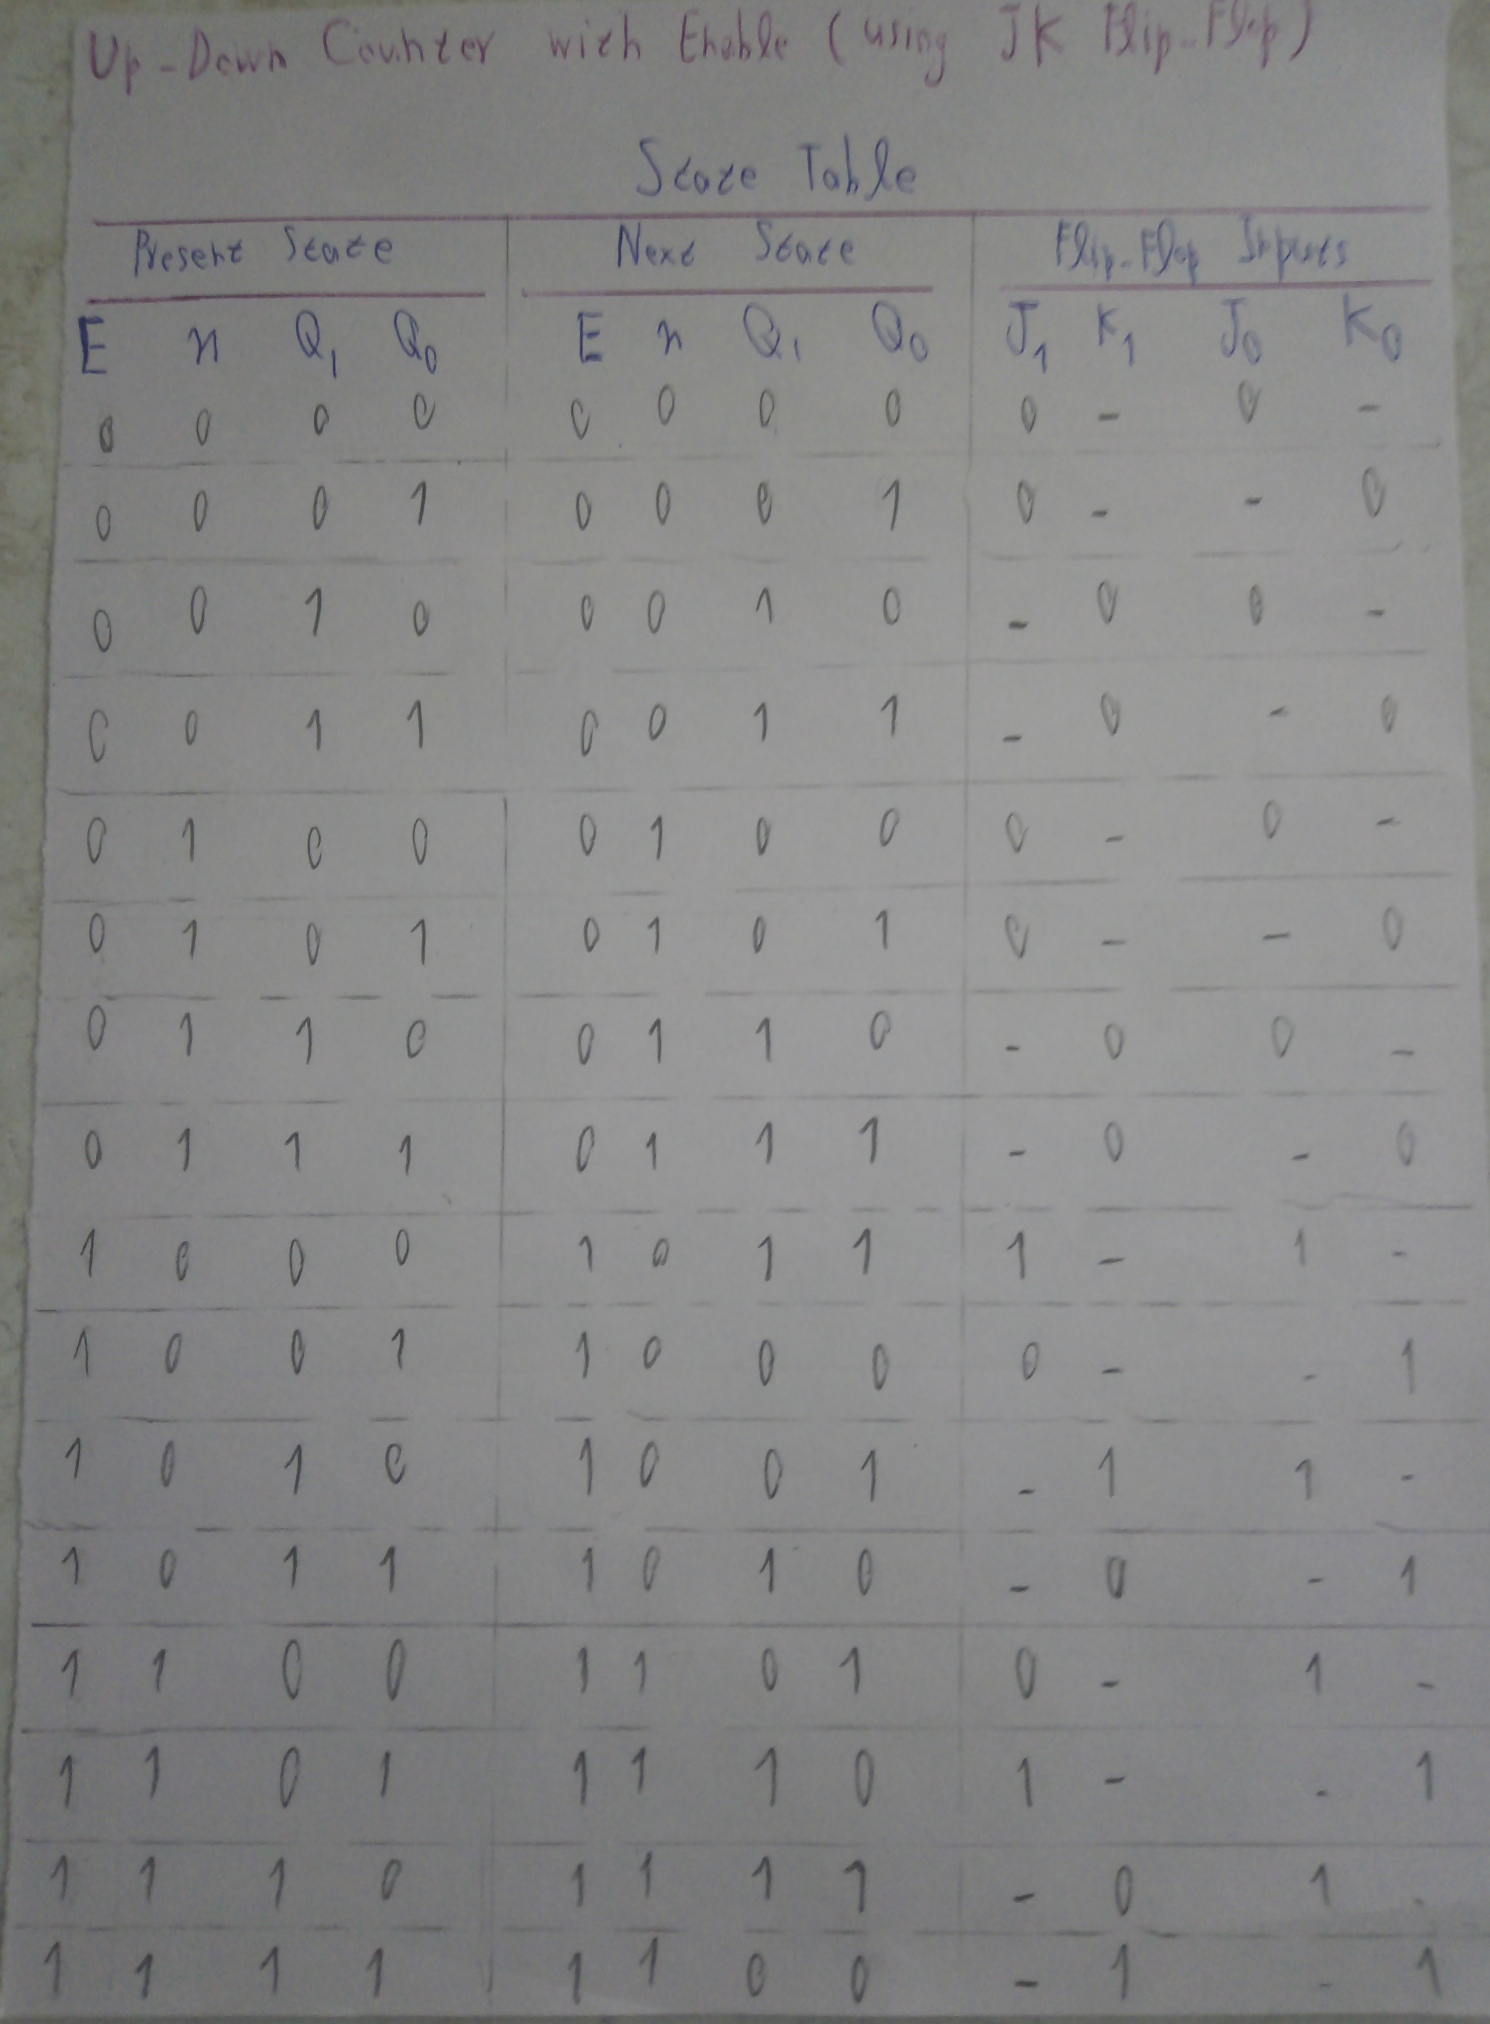 Up-Down Counter with Enable (using JK Flip-Flop)
State Table
Present State Next State Flip-Flop Inputs
E n Q1 Q0 E n Q1 Q0 J1 K1 J0 K0
0 0 0 0 0 0 0 0 0 - 0 -
0 0 0 1 0 0 0 1 0 - - 0
0 0 1 0 0 0 1 0 - 0 0 -
0 0 1 1 0 0 1 1 - 0 - 0
0 1 0 0 0 1 0 0 0 - 0 -
0 1 0 1 0 1 0 1 0 - - 0
0 1 1 0 0 1 1 0 - 0 0 -
0 1 1 1 0 1 1 1 - 0 - 0
1 0 0 0 1 0 1 1 1 - 1 -
1 0 0 1 1 0 0 0 0 - - 1
1 0 1 0 1 0 0 1 - 1 1 -
1 0 1 1 1 0 1 0 - 0 - 1
1 1 0 0 1 1 0 1 0 - 1 -
1 1 0 1 1 1 1 0 1 - - 1
1 1 1 0 1 1 1 1 - 0 1 -
1 1 1 1 1 1 0 0 - 1 - 1